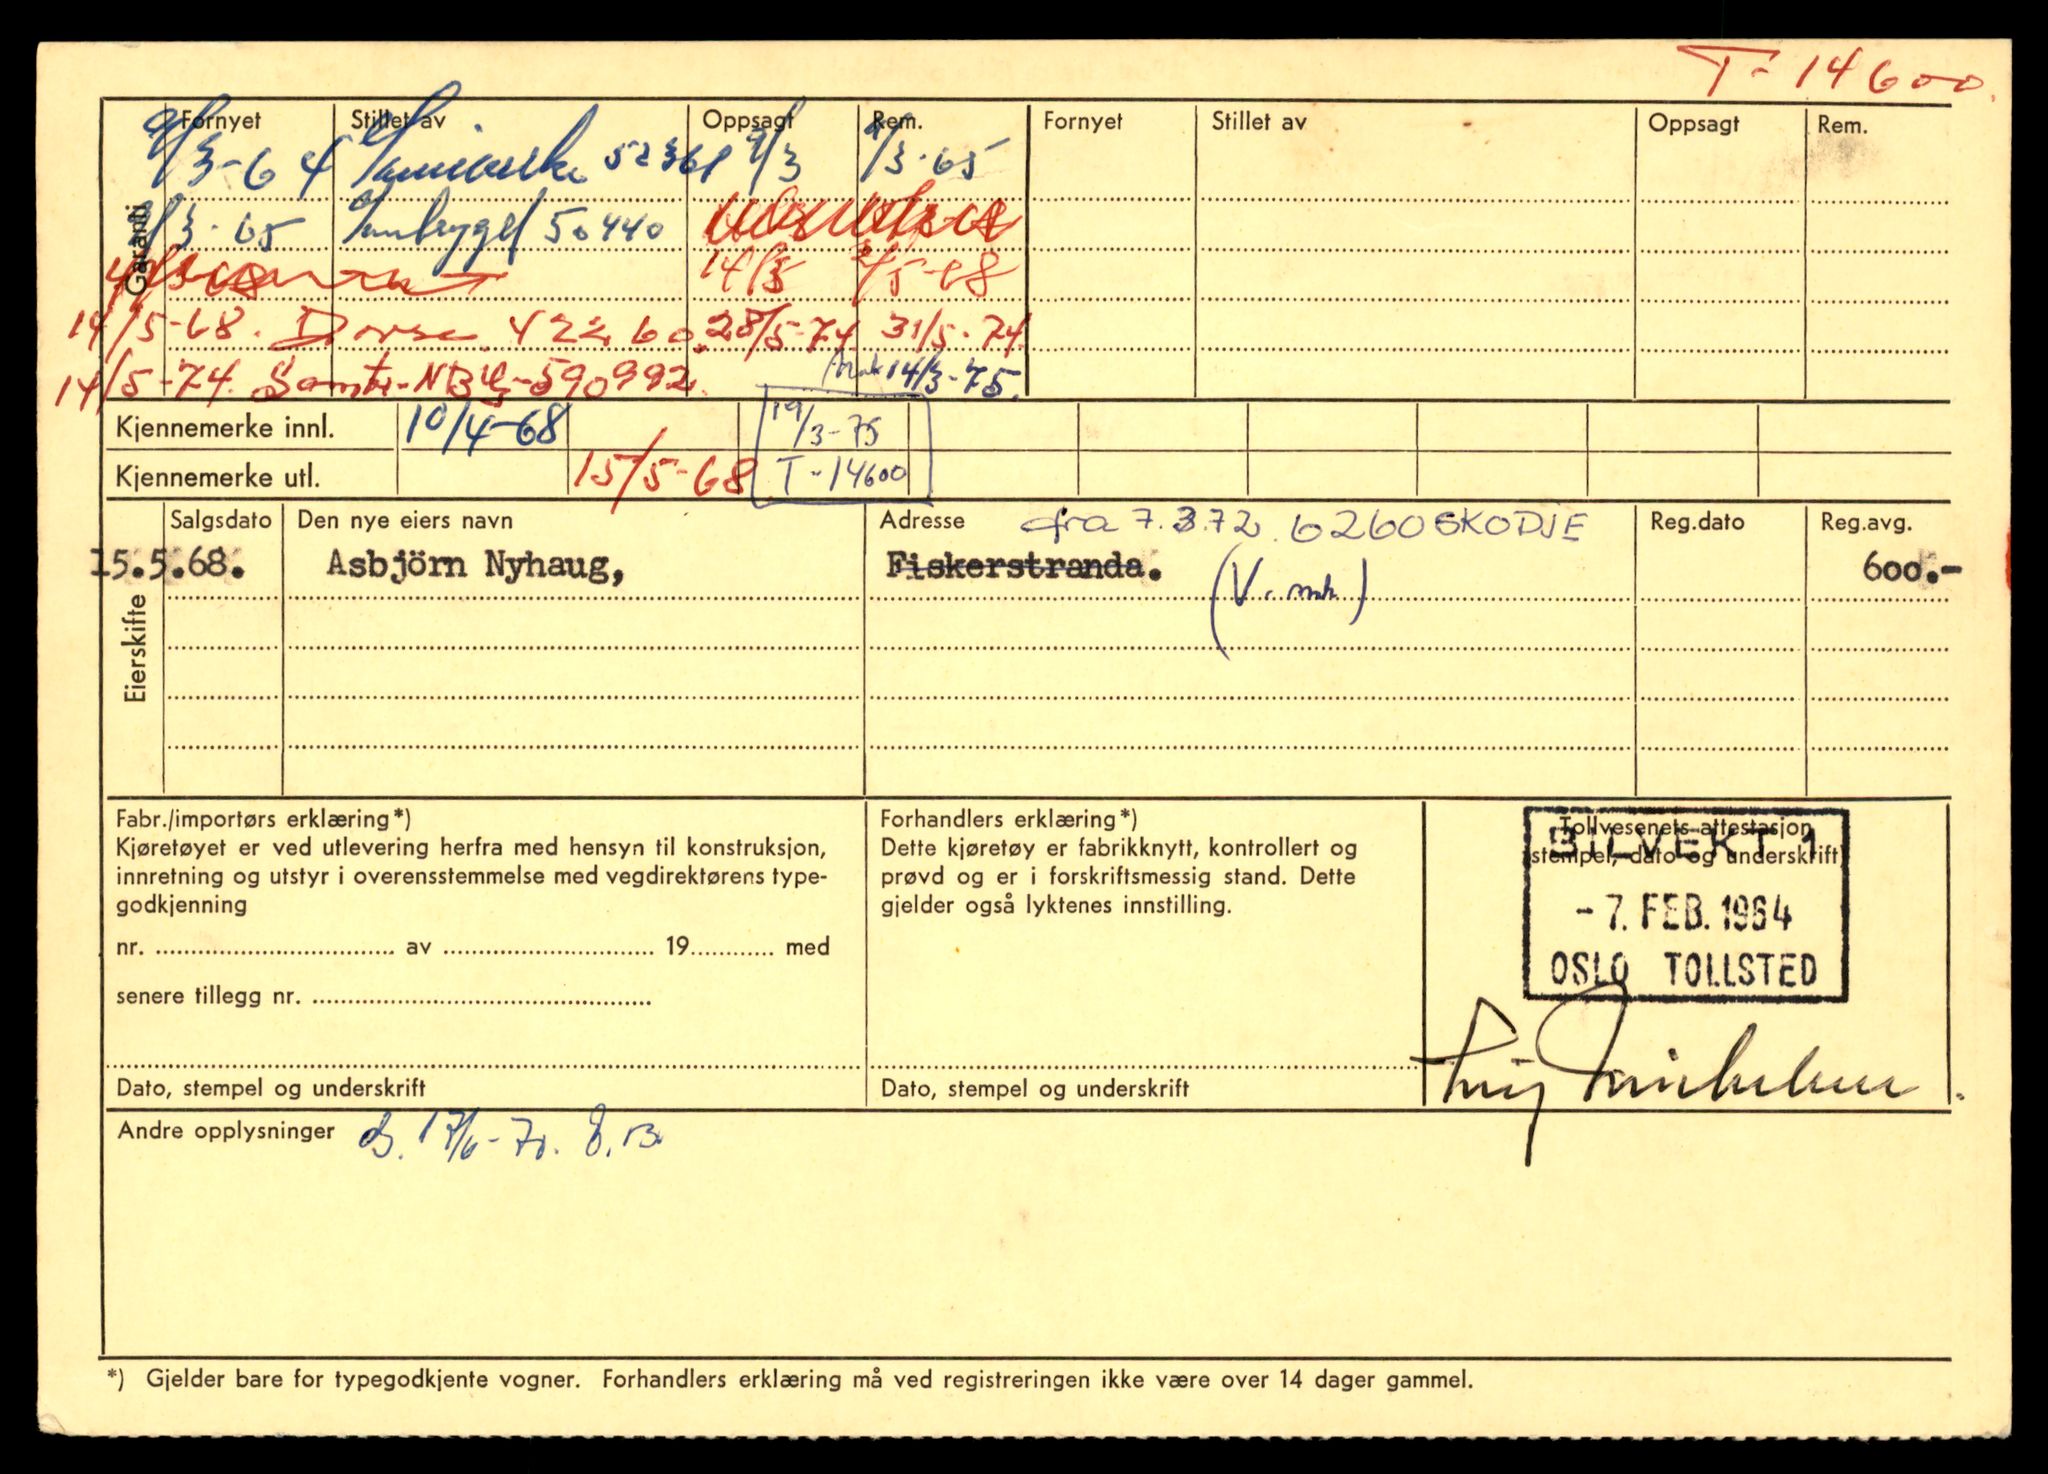 T-14600.
Garanti
Fornyet Stillet av Oppsagt Rem. Fornyet Stillet av Oppsagt Rem.
9/3-64 52361 9/3 9/3-65
9/3-65 50440
14/5 5-68
14/5-68. 42260. 28/5-74 31/5-74.
14/5-74. 590992. 14/3-75.
Kjennemerke innl. 10/4-68 19/3-75
Kjennemerke utl. 15/5-68 T-14600
Eierskifte
Salgsdato Den nye eiers navn Adresse fra 7.3.72. 6260 SKODJE Reg.dato Reg.avg.
15.5.68. Asbjörn Nyhaug, Fiskerstranda. 600.-
(V. mrk)
Fabr./importørs erklæring*)
Kjøretøyet er ved utlevering herfra med hensyn til konstruksjon,
innretning og utstyr i overensstemmelse med vegdirektørens type-
godkjenning
nr. .......... av .......... 19.......... med
senere tillegg nr. ..........
Dato, stempel og underskrift
Forhandlers erklæring*)
Dette kjøretøy er fabrikknytt, kontrollert og
prøvd og er i forskriftsmessig stand. Dette
gjelder også lyktenes innstilling.
Dato, stempel og underskrift
Tollvesenets attestasjon
stempel, dato og underskrift
BILVEKT 1
- 7. FEB. 1964
OSLO TOLLSTED
Andre opplysninger 17/6-70.
*) Gjelder bare for typegodkjente vogner. Forhandlers erklæring må ved registreringen ikke være over 14 dager gammel.